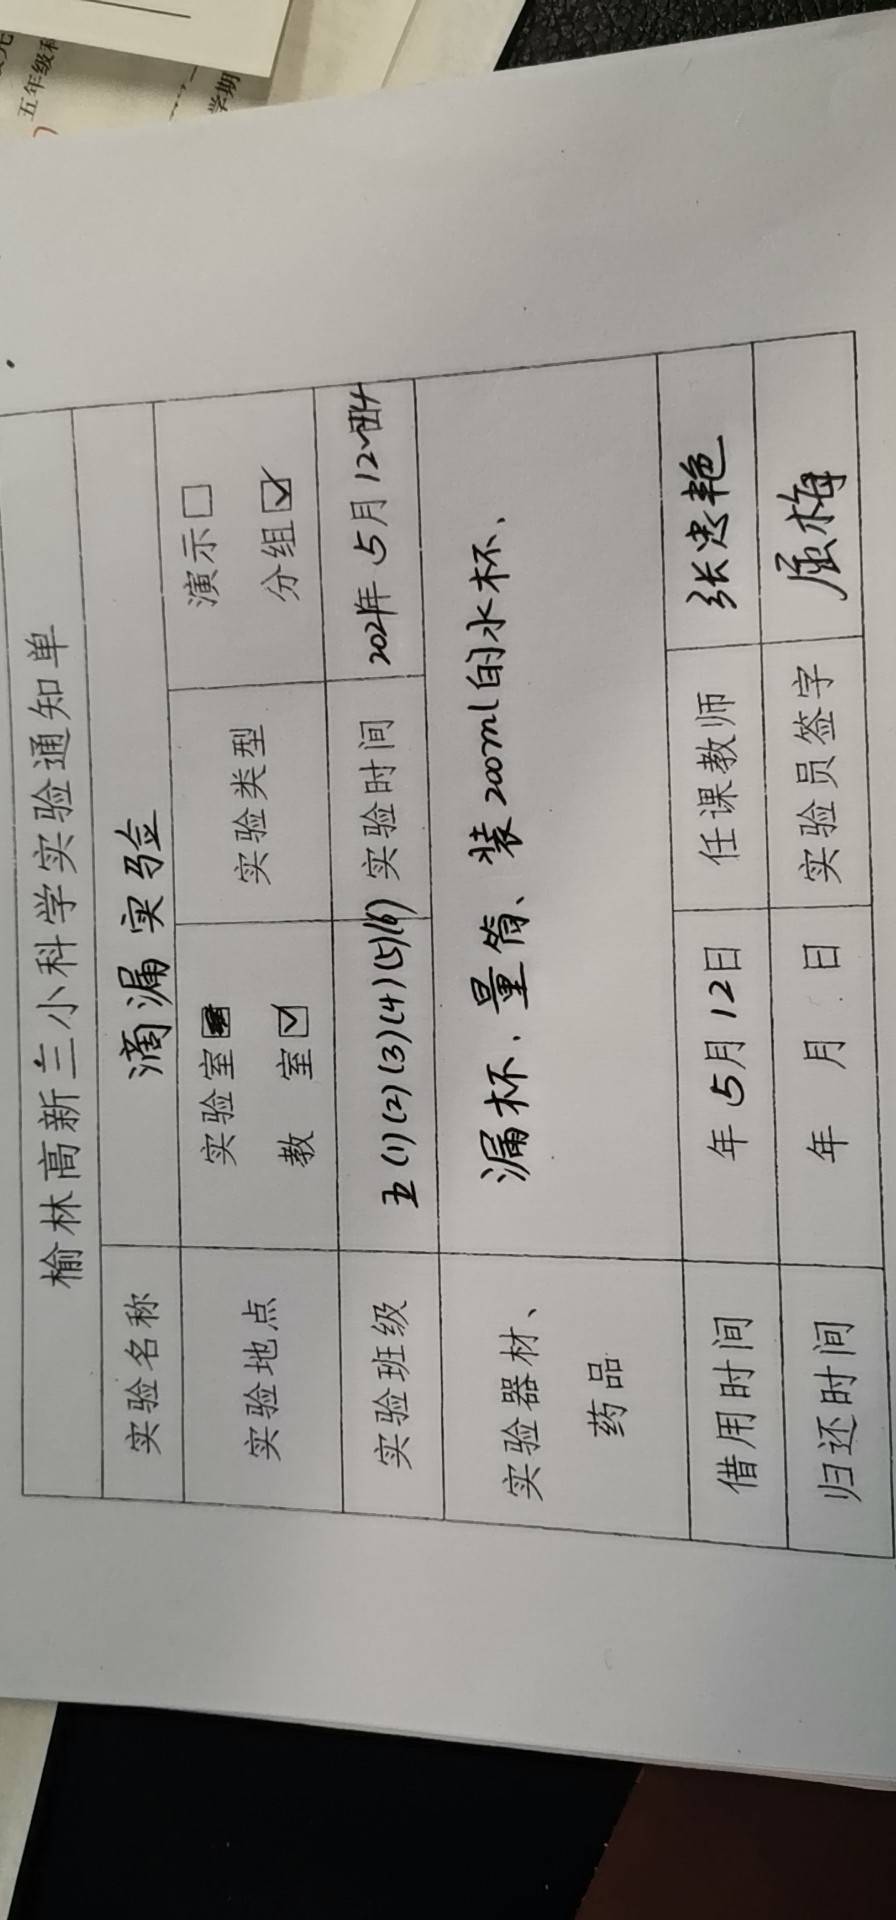 五年级科
学期
榆林高新三小科学实验通知单
实验名称 滴漏实验
实验地点 实验室 教 室☑ 实验类型 演示□ 分组☑
实验班级 五(1)(2)(3)(4)(5)(6) 实验时间 2021年5月12
实验器材、药品 漏杯、量筒、装200ml的水杯、
借用时间 年5月12日 任课教师 张忠艳
归还时间 年 月 日 实验员签字 屈梅